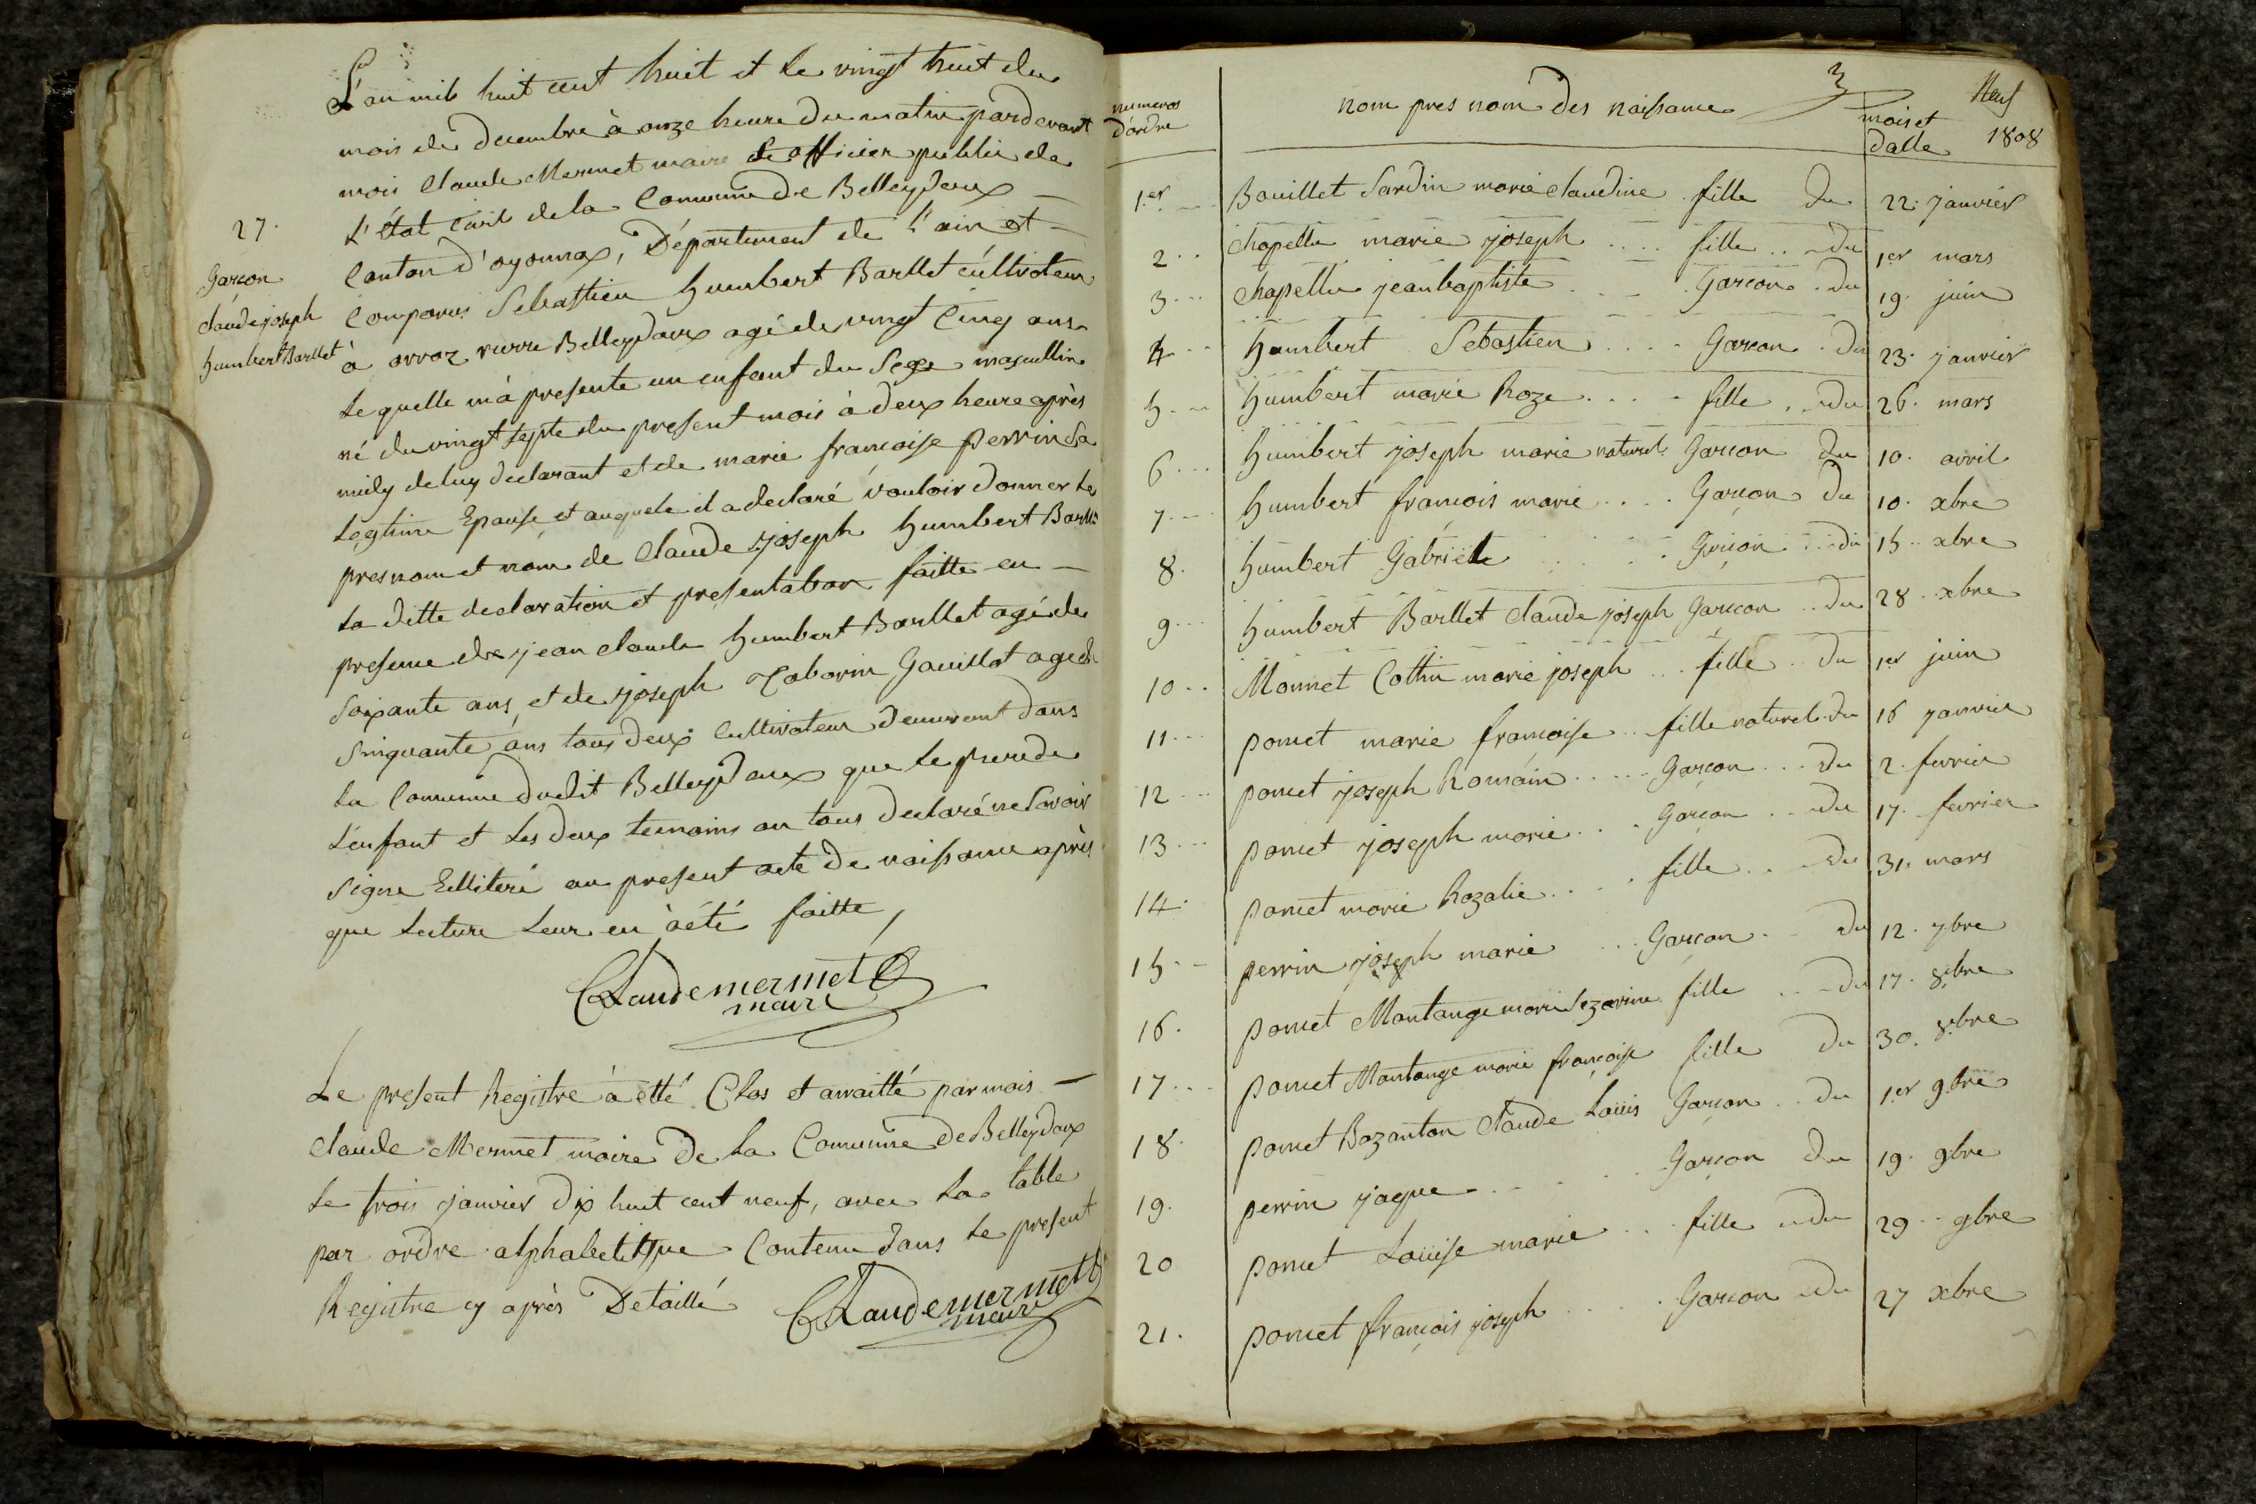 L'an mil huit cent huit et le vingt huit du
mois de decembre à onze heure du matin pardevant
mois Claude Mermet maire & officier public de
L'état Civil dela Commune De Belleydoux —
Canton d'oyonnax, Département de l'ain est —
Comparus Sebastien humbert Barllet cultivateur
à orvoz rierre Belleydoux agé de vingt Cinq ans
Lequelle m'a presente un enfant du Sexe masculin
né du vingt septe du present mois à deux heure après
midy de luy declarant et de marie francoise perrin Sa
Legitime Epouse et auquele il a declaré vouloir donner les
presnom et nom de Claude joseph humbert Barllet
La ditte declaration et presentation faitte en —
presence de jean claude humbert Barllet agé de
Soixante ans, et de joseph Taborin Gouillot agé de
Sinquante ans tous deux Cultivateur demeurant dans
La Commune dudit Belleydoux que le pere de
L'enfant et Les deux temoins on tous declaré ne Savoir
Signe Eilliteré au present acte de naissance après
que Lecture Leur en à été faitte,
Claude mermet
maire
27.
Garcon
claude joseph
humbert Barllet
Le present Registre à etté Clos et arraitté par mois —
Claude Mermet maire De La Commune De Belleydoux
Le trois janvier dix huit cent neuf, avec La table
par ordre alphabetitque Contenu dans Le present
Registre cy après Detaillé
Claude mermet
maire
numeros
d'ordre
nom pres nom des naissance
3
mois et
datte
Neuf
1808
1.er Bouillet Sardin marie claudine fille du 22. janvier
2 Chapellu marie joseph fille du 1er mars
3 Chapellu jean baptiste Garcon du 19. juin
4 humbert Sebastien Garcon du 23. janvier
5 humbert marie Roze fille du 26. mars
6 humbert joseph marie naturel Garcon du 10. avril
7 humbert francois marie Garcon du 10. xbre
8. humbert Gabriele Garcon du 15 xbre
9 humbert Barllet claude joseph Garcon du 28 xbre
10 Monnet Cottin marie joseph fille du 1er juin
11 poncet marie francoise fille naturel du 16 janvier
12 poncet joseph Romain Garcon du 2. fevrier
13 poncet joseph marie Garcon du 17. fevrier
14. poncet marie Rozalie fille du 31. mars
15 perrin joseph marie Garcon du 12. 7bre
16. poncet Montange marie Sezarine fille du 17. 8bre
17 poncet Montange marie françoise fille du 30. 8bre
18. poncet Bozonton Claude Loüis Garcon du 1er 9bre
19. perrin jaque Garcon du 19. 9bre
20 poncet Loüise marie fille du 29 9bre
21. poncet françois joseph Garcon du 27 xbre